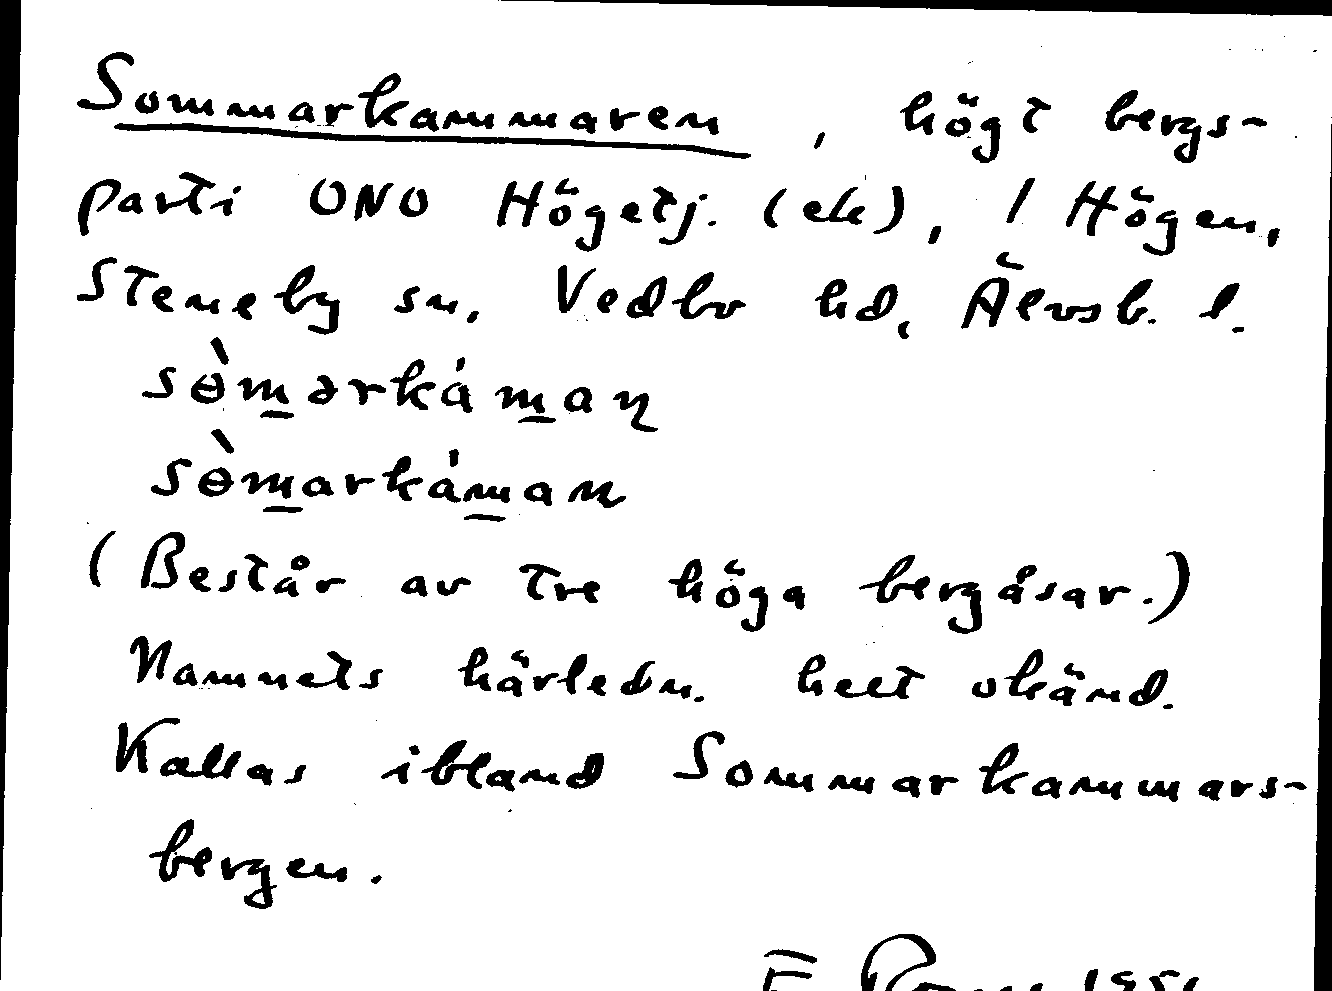 Sommarkammaren, högt bergs-
parti ONO Högetj. (ek), 1 Högen,
Steneby sn, Vedbo hd, Älvsb. l.
sòmərkámaɳ
sòmarkáman
(Består av tre höga bergåsar.)
Namnets härledn. helt okänd.
Kallas ibland Sommarkammars-
bergen.